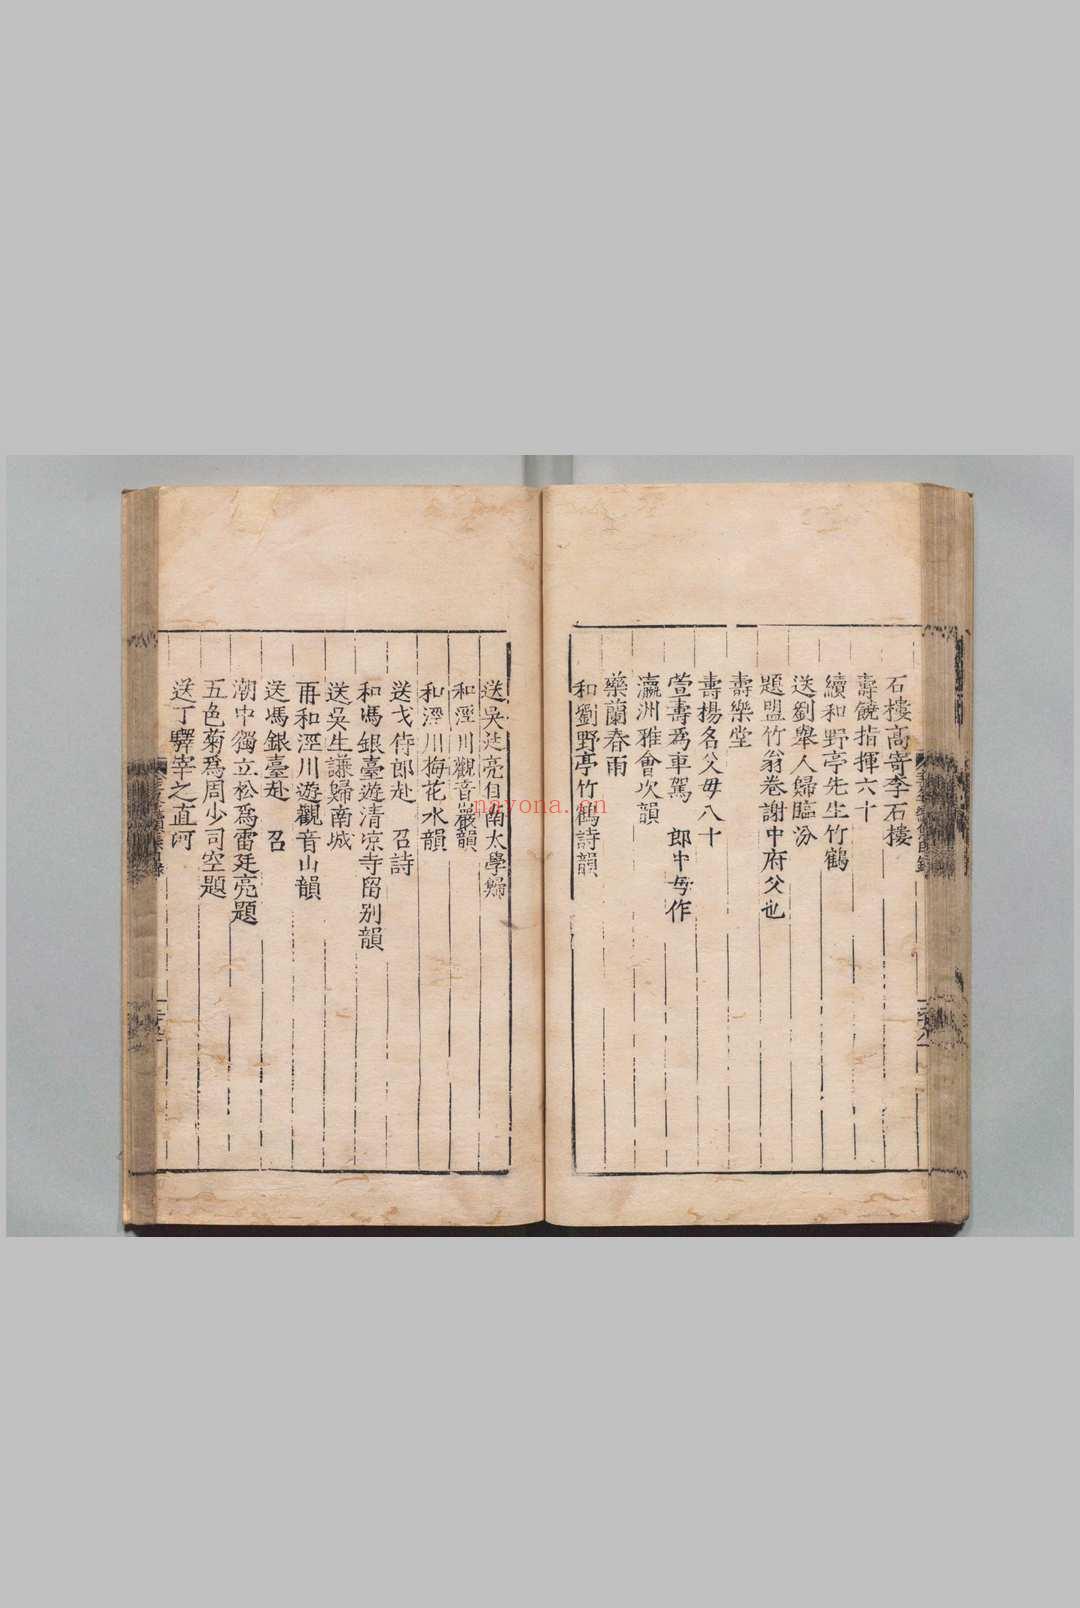 石樓高寄李石樓
壽饒指揮六十
續和野亭先生竹鶴
送劉舉人歸臨汾
題盟竹翁卷謝中府父也
壽樂堂
壽楊名父母八十
萱壽為車駕 郎中母作
瀛洲雅會次韻
藥蘭春雨
和劉野亭竹鶴詩韻
送吳廷亮自南太學歸
和涇川觀音巖韻
和涇川梅花水韻
送戈侍郎赴 召詩
和馮銀臺遊清凉寺留别韻
送吳生謙歸南城
再和涇川遊觀音山韻
送馮銀臺赴 召
潮中獨立松為雷廷亮題
五色菊為周少司空題
送丁驛宰之直河
nayona.cn